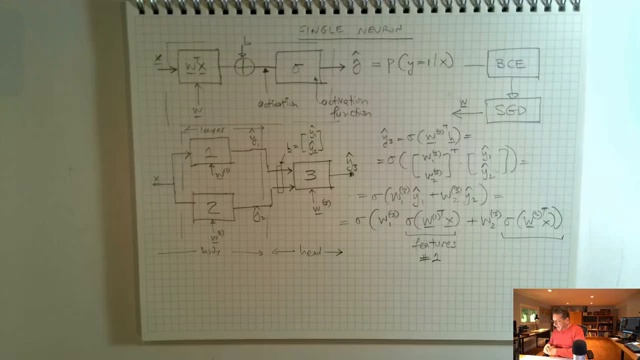 SINGLE NEURON
x → wᵀx → + → σ → ŷ = P(y=1|x) — BCE
b
w
activation
activation function
w SGD
layer
ŷ₁
x 1 w⁽¹⁾
h = [ŷ₁ ŷ₂]
3 ŷ₃
w⁽³⁾
2 ŷ₂
w⁽²⁾
body
head
ŷ₃ = σ(w⁽³⁾ᵀ h) =
= σ([w₁⁽³⁾ w₂⁽³⁾]ᵀ [ŷ₁ ŷ₂]) =
= σ(w₁⁽³⁾ ŷ₁ + w₂⁽³⁾ ŷ₂) =
= σ(w₁⁽³⁾ σ(w⁽¹⁾ᵀ x) + w₂⁽³⁾ σ(w⁽²⁾ᵀ x))
features
#2